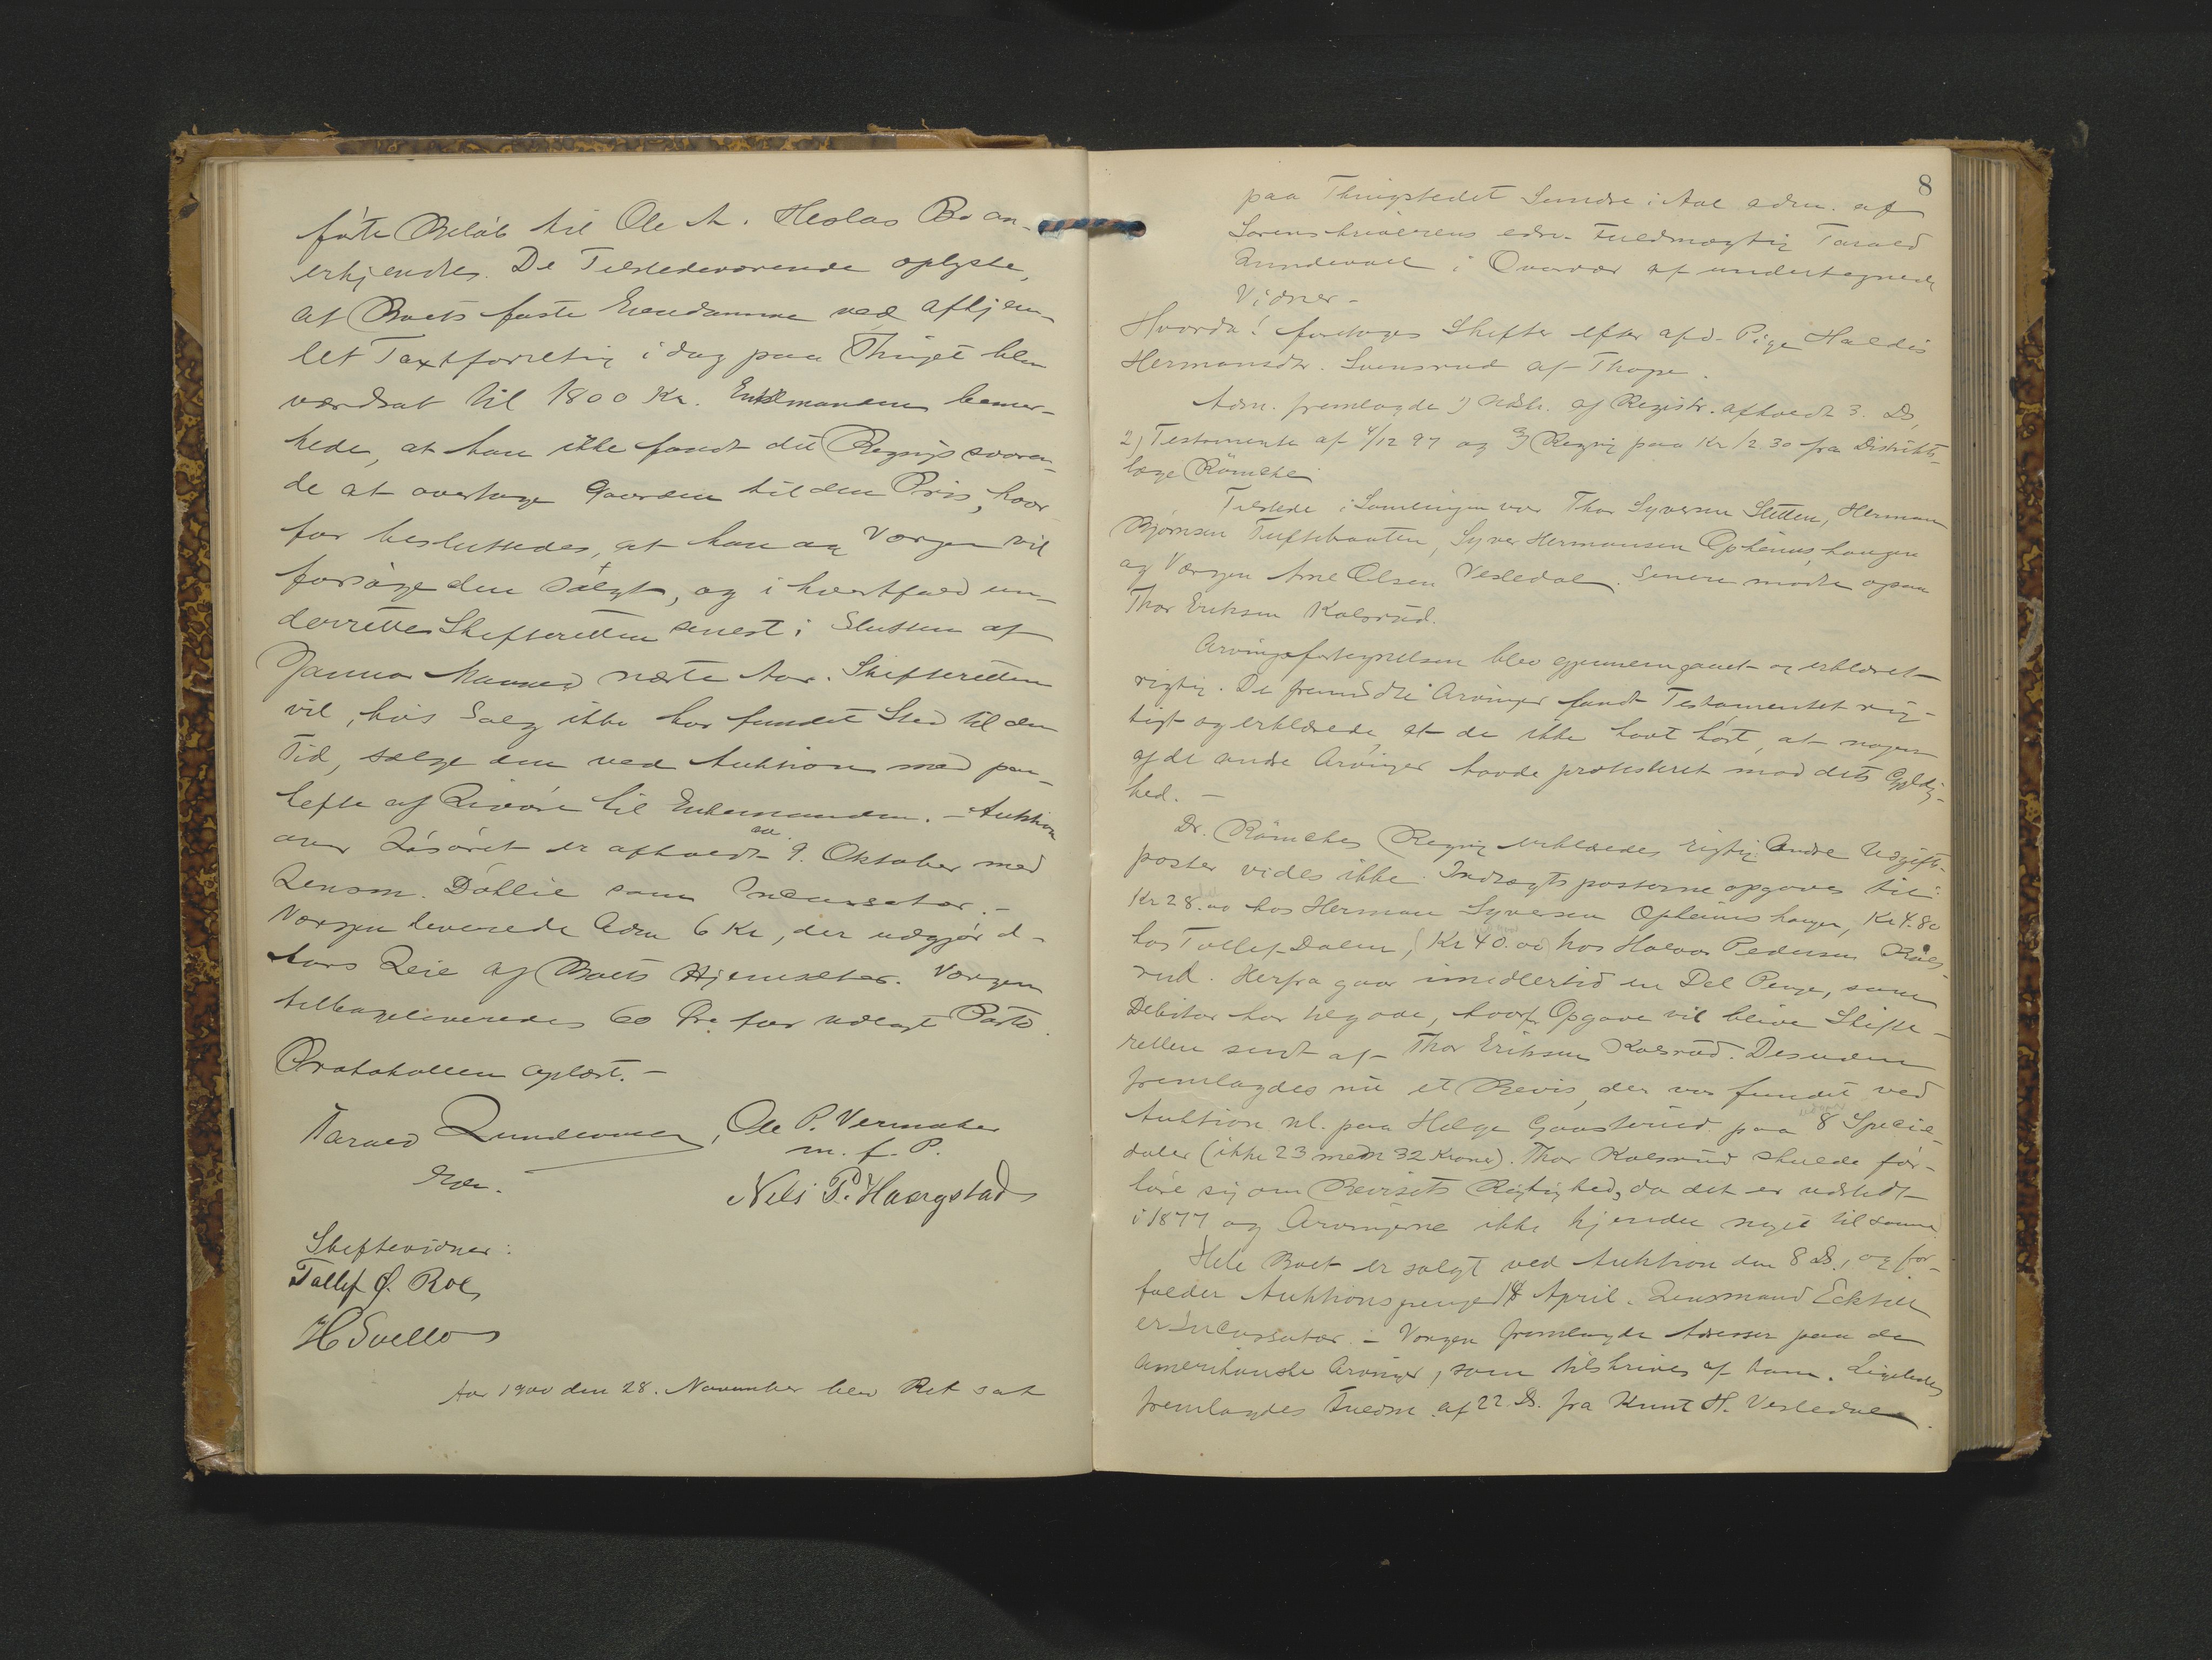 förte Beløb til Ole A. Heslas Bo an-
erkjendtes. De Tilstedeværende oplyste,
at Boets faste Eiendomme ved afhjem-
let Taxtforretning i dag paa Thinget blev
værdsat til 1800 Kr. Enkemanden bemær-
kede, at han ikke fandt det Regningssvaren-
de at overtage Gaarden til den Pris, hvor
for besluttedes, at han og Værgen vil
forsøge den solgt, og i hvertfald un-
derrette Skifteretten senest i Slutten af
Januar Maaned næste Aar. Skifteretten
vil, hvis Salg ikke har fundet Sted til den
Tid, sælge den ved Auktion med paa-
hefte af Livøre til Enkemanden. – Auktion
over Løsøret er afholdt 9. Oktober med
Lensm. Døhlie som Incassator. –
Værgen leverede Adm 6 Kr, der udgjør d-
Aars Leie af Boets Hjemseter. Værgen
tilbageleveredes 60 Øre for udlagt Porto.
Protokollen oplæst. –
Tarald Lundevall, Ole P. Vermaker
m. f. P.
Nils P. Haargstad
Skiftevidner:
Tollef O. Roe
H Svello
Aar 1900 den 28. November blev Ret sat
8
paa Thingstedet Sundre i Aal adm. af
Sorenskriverens edsv. Fuldmægtig Tarald
Lundevall i Overvær af undertegnede
Vidner –
Hvorda! foretoges Skifter efter afd. Pige Haldis
Hermansdtr. Svensrud af Thorpe.
Adm. fremlagde 1) Udskr. af Registr. afholdt 3. Ds,
2) Testamente af 4/12 97 og 3) Regning paa Kr 12.30 fra Distrikts-
læge Römcke
Tilstede i Samlingen var Thor Syversen Sletten, Herman
Bjørnsen Tuftebraaten, Syver Hermansen Opheimshaugen
og Værgen Arne Olsen Vesledal. Senere mødte ogsaa
Thor Eriksen Kolsrud.
Arvingsfortegnelsen blev gjennemgaaet og erklæret
rigtig. De fremmødte Arvinger fandt Testamentet rig-
tigt og erklærede, at de ikke havt hørt, at nogen
af de andre Arvinger havde protesteret mod dets Gyldig-
hed. –
Dr. Römckes Regning erklæredes rigtig. Andre Udgifts-
poster vides ikke. Indtægtsposterne opgaves til:
Kr 28.00 hos Herman Syversen Opheimshaugen, Kr 4.80
hos Tollef Dalen, Kr 40.00 hos Halvor Pedersen
rud. Herfra gaar imidlertid en Del Penge, som
Debitor har tilgode, hvorfr Opgave vil blive Skifte-
retten sendt af Thor Eriksen Kolsrud. Desuden
fremlagdes nu et Bevis, der var fundet ved
Auktion nl. paa Helge Gaasterud paa 8 Specie-
daler (ikke 23 men 32 Kroner). Thor Kolsrud skulde for-
høre sig om Bevisets Rigtighed, da det er udstedt
i 1877 og Arvingerne ikke kjender noget til samme
Hele Boet er solgt ved Auktion den 8 ds., og for-
falder Auktionspenge 14 April. Lensmand Eckhell
er Incassator. – Værgen fremlagde Adresser paa de
Amerikanske Arvinger, som tilskrives af ham. Ligeledes
fremlagdes Fuldm. af 22. Ds. fra Knut H. Vesledal.